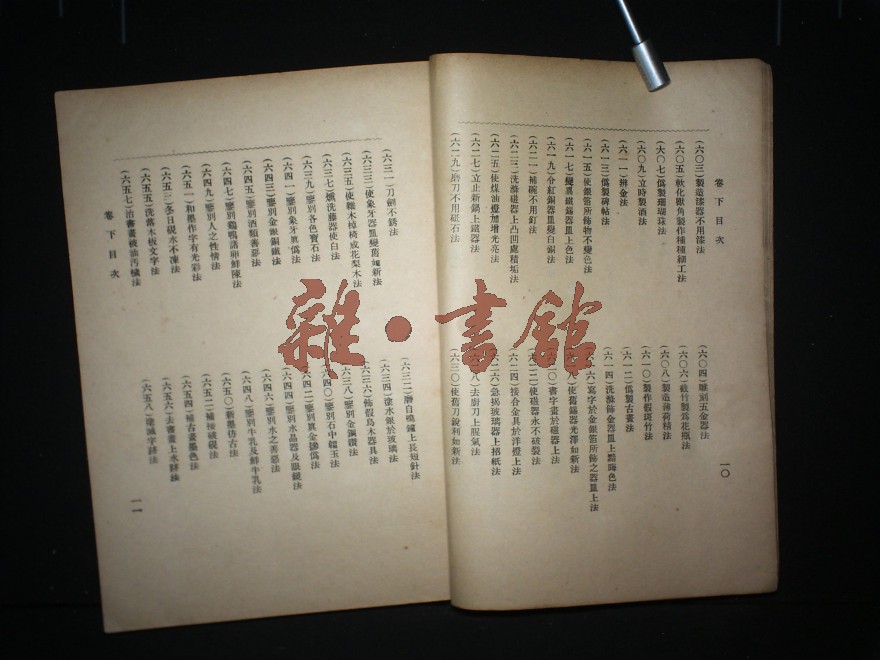 卷下目次
一〇
(六〇三)製造漆器不用漆法
(六〇四)雕刻五金器法
(六〇五)軟化獸角製作種種細工法
(六〇六)截竹製為花瓶法
(六〇七)偽製珊瑚珠法
(六〇八)製造薄荷精法
(六〇九)立時製酒法
(六一〇)製作假斑竹法
(六一一)辨金法
(六一二)偽製古畫法
(六一三)偽製碑帖法
(六一四)洗滌飾金器皿上黯晦色法
(六一五)使銀箔所飾物不變色法
(六一六)寫字於金銀箔所飾之器皿上法
(六一七)變異鐵錫器皿上色法
(六一八)使舊錫器光澤如新法
(六一九)令紅銅器皿變白銅法
(六二〇)書字畫於磁器上法
(六二一)補碗不用釘法
(六二二)使磁器永不破裂法
(六二三)洗滌磁器上凸凹處積垢法
(六二四)接合金具於洋燈上法
(六二五)使煤油燈加增光亮法
(六二六)急揭玻璃器上招紙法
(六二七)立止新鍋上鐵器法
(六二八)去廚刀上腥氣法
(六二九)磨刀不用砥石法
(六三〇)使舊刀銳利如新法
(六三一)刀劍不銹法
(六三二)磨自鳴鐘上長短針法
(六三三)使象牙器皿變舊如新法
(六三四)塗水銀於玻璃法
(六三五)使雜木棹椅成花梨木法
(六三六)飾假烏木器具法
(六三七)燻洗藤器使白法
(六三八)鑒別金鋼鑽法
(六三九)鑒別各色寶石法
(六四〇)鑒別石中韞玉法
(六四一)鑒別象牙真偽法
(六四二)鑒別真金摻偽法
(六四三)鑒別金銀銅鐵法
(六四四)鑒別水晶器及眼鏡法
(六四五)鑒別酒類善惡法
(六四六)鑒別水之善惡法
(六四七)鑒別鷄鴨諸卵鮮陳法
(六四八)鑒別牛乳及鮮牛乳法
(六四九)鑒別人之性情法
(六五〇)新墨仿古法
(六五一)和墨作字有光彩法
(六五二)補接破硯法
(六五三)冬日硯水不凍法
(六五四)補古畫墨色法
(六五五)洗落木板文字法
(六五六)去書畫上水跡法
(六五七)治書畫被油污穢法
(六五八)塗滅字跡法
卷下目次
一一
雜·書館